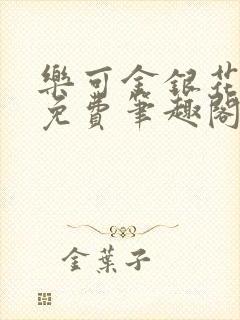 樂可金銀花
免費筆趣閣
金葉子